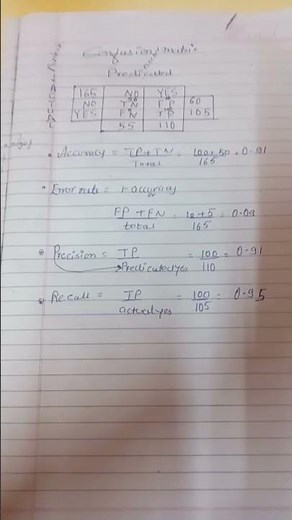 Confusion Matrix
Predicated
165 NO YES
NO TN FP 60
YES FN TP 105
55 110
ACTUAL
• Accuracy = TP + TN = 100 + 50 = 0.91
Total 165
• Error rate = 1-accuracy
FP + FN = 10 + 5 = 0.09
total 165
• Precision = TP = 100 = 0.91
Predicated yes 110
• Recall = TP = 100 = 0.95
actual yes 105